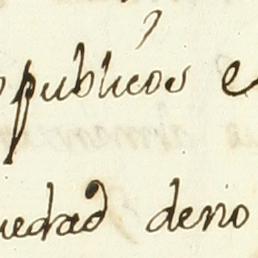 publicos e
iedad deno